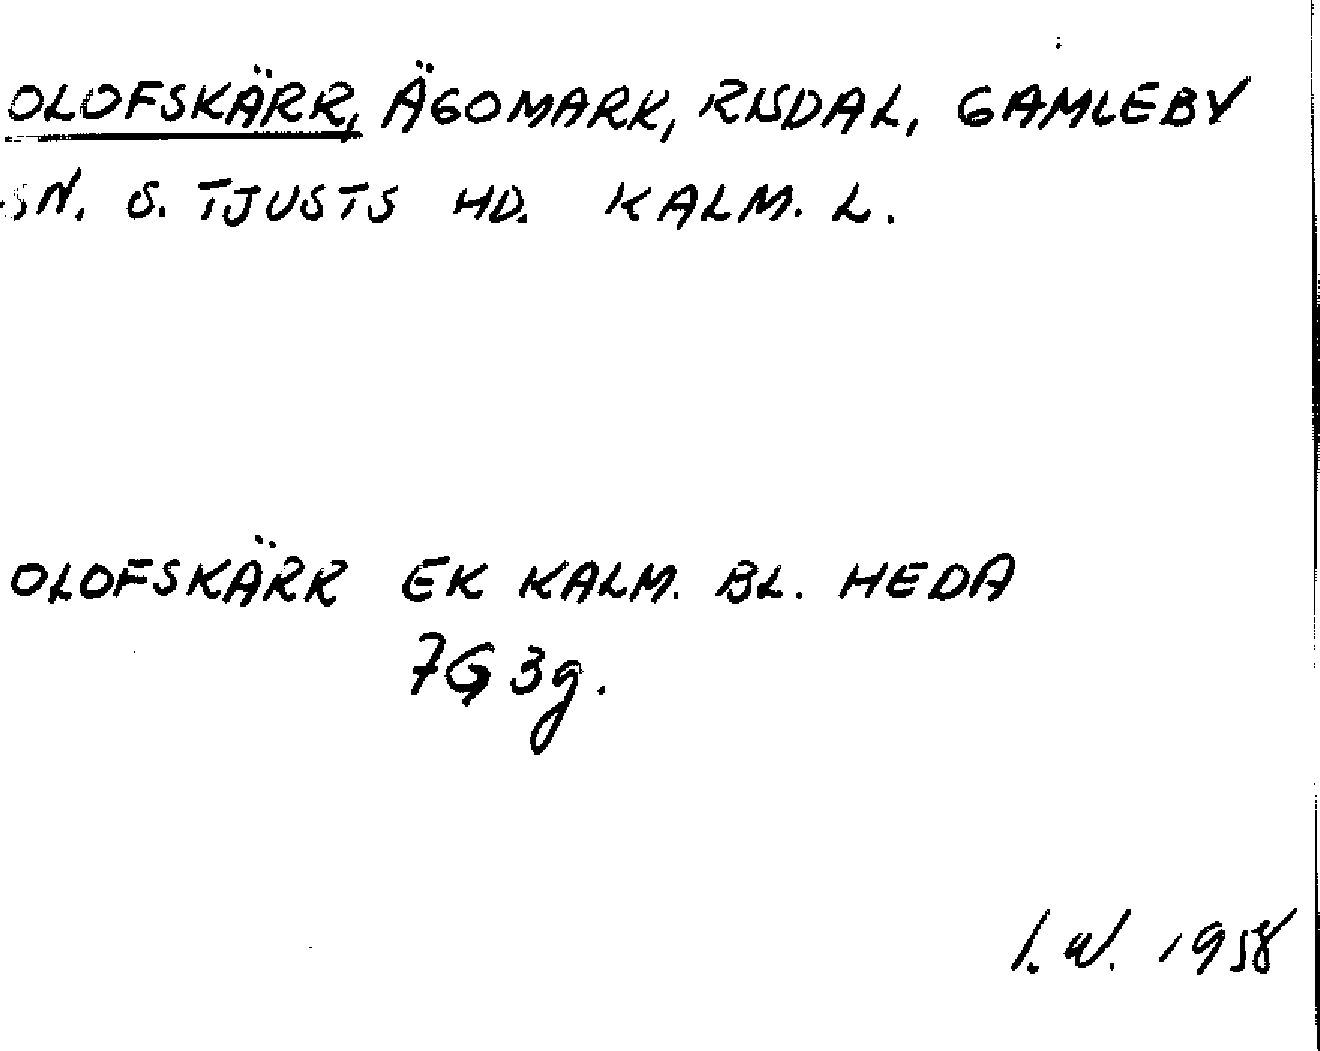 OLOFSKÄRR, ÄGOMARK, RISDAL, GAMLEBY
SN. S. TJUSTS HD. KALM. L.
OLOFSKÄRR EK KALM. BL. HEDA
7G 3g.
I.W. 1958